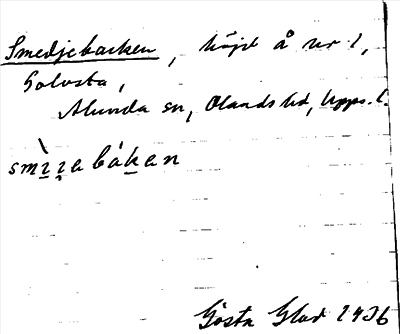 Smedjebacken, höjd å nr 1,
Golvsta,
Alunda sn, Olands hd, Upps. l.
smìɪ̣ɪ̣abákan
Gösta Glad 1936